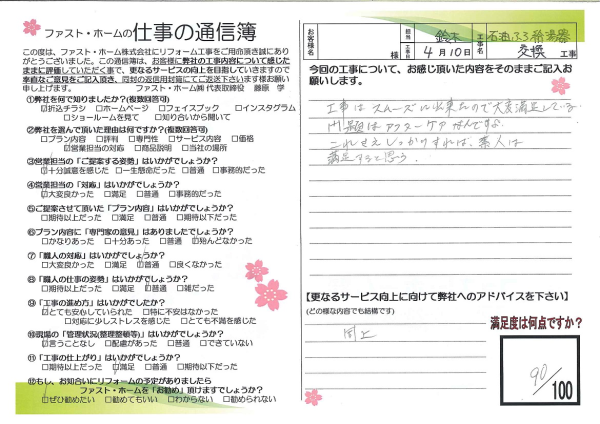 ファスト・ホームの仕事の通信簿
この度は、ファスト・ホーム株式会社にリフォーム工事をご用命頂き誠にあり
がとうございました。この通信簿は、お客様に弊社の工事内容について感じた
ままに評価していただく事で、更なるサービスの向上を目指していきますので
率直なご意見をご記入頂き、同封の返信用封筒にてご返送下さいます様お願い
申し上げます。 ファスト・ホーム㈱ 代表取締役 藤原 学
①弊社を何で知りましたか?(複数回答可)
☑折込チラシ □ホームページ □フェイスブック □インスタグラム
□ショールームを見て □知り合いから聞いて
②弊社を選んで頂いた理由は何ですか?(複数回答可)
□プラン内容 □評判 □専門性 □サービス内容 □価格
☑営業担当の対応 □商品説明 □当社の場所
③営業担当の「ご提案する姿勢」はいかがでしょうか?
☑十分誠意を感じた □一生懸命だった □普通 □事務的だった
④営業担当の「対応」はいかがでしょうか?
☑大変良かった □満足 □普通 □事務的だった
⑤ご提案させて頂いた「プラン内容」はいかがでしょうか?
□期待以上だった □満足 □普通 □期待以下だった
⑥プラン内容に「専門家の意見」はありましたでしょうか?
□かなりあった □十分あった □普通 ☑殆んどなかった
⑦「職人の対応」はいかがでしょうか?
□大変良かった □満足 ☑普通 □良くなかった
⑧「職人の仕事の姿勢」はいかがでしょうか?
□期待以上だった □満足 ☑普通 □雑だった
⑨「工事の進め方」はいかがでしょうか?
☑とても安心していられた □特に不安はなかった
□対応に少しストレスを感じた □とても不満を感じた
⑩現場の「管理状況(整理整頓等)」はいかがでしょうか?
☑言うことなし □配慮があった □普通 □できていない
⑪「工事の仕上がり」はいかがでしょうか?
□期待以上だった ☑満足 □普通 □期待以下だった
⑫もし、お知合いにリフォームの予定がありましたら
ファスト・ホームを「お勧め」頂けますでしょうか?
☑ぜひ勧めたい □勧めてもいい □わからない □勧められない
お客様名 様
担当 鈴木
工事日 4月10日
工事名 石油ふろ給湯器
交換 工事
今回の工事について、お感じ頂いた内容をそのままご記入お
願いします。
工事はスムーズに出来たので大変満足している
問題はアフターケアなんですよ。
これさえしっかりすれば、素人は
満足すると思う。
【更なるサービス向上に向けて弊社へのアドバイスを下さい】
(どの様な内容でも結構です)
同上
満足度は何点ですか?
90/100